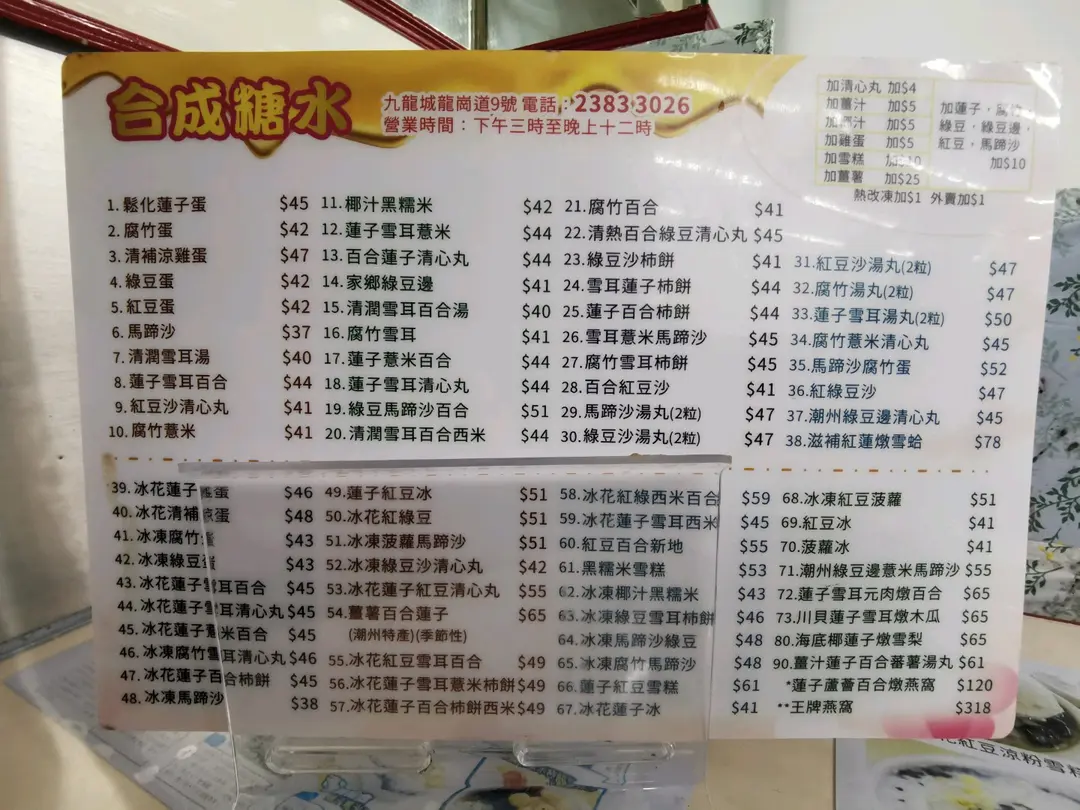 合成糖水
九龍城龍崗道9號 電話：2383 3026
營業時間：下午三時至晚上十二時
加清心丸 加$4
加薑汁 加$5
加椰汁 加$5
加雞蛋 加$5
加雪糕 加$10
加薑薯 加$25
加蓮子，腐竹，
綠豆，綠豆邊，
紅豆，馬蹄沙
加$10
熱改凍加$1 外賣加$1
1.鬆化蓮子蛋 $45
2.腐竹蛋 $42
3.清補涼雞蛋 $47
4.綠豆蛋 $42
5.紅豆蛋 $42
6.馬蹄沙 $37
7.清潤雪耳湯 $40
8.蓮子雪耳百合 $44
9.紅豆沙清心丸 $41
10.腐竹薏米 $41
11.椰汁黑糯米 $42
12.蓮子雪耳薏米 $44
13.百合蓮子清心丸 $44
14.家鄉綠豆邊 $41
15.清潤雪耳百合湯 $40
16.腐竹雪耳 $41
17.蓮子薏米百合 $44
18.蓮子雪耳清心丸 $44
19.綠豆馬蹄沙百合 $51
20.清潤雪耳百合西米 $44
21.腐竹百合 $41
22.清熱百合綠豆清心丸 $45
23.綠豆沙柿餅 $41
24.雪耳蓮子柿餅 $44
25.蓮子百合柿餅 $44
26.雪耳薏米馬蹄沙 $45
27.腐竹雪耳柿餅 $45
28.百合紅豆沙 $41
29.馬蹄沙湯丸(2粒) $47
30.綠豆沙湯丸(2粒) $47
31.紅豆沙湯丸(2粒) $47
32.腐竹湯丸(2粒) $47
33.蓮子雪耳湯丸(2粒) $50
34.腐竹薏米清心丸 $45
35.馬蹄沙腐竹蛋 $52
36.紅綠豆沙 $47
37.潮州綠豆邊清心丸 $45
38.滋補紅蓮燉雪蛤 $78
39.冰花蓮子雞蛋 $46
40.冰花清補涼蛋 $48
41.冰凍腐竹蛋 $43
42.冰凍綠豆蛋 $43
43.冰花蓮子雪耳百合 $45
44.冰花蓮子雪耳清心丸 $45
45.冰花蓮子薏米百合 $45
46.冰凍腐竹雪耳清心丸 $46
47.冰花蓮子百合柿餅 $45
48.冰凍馬蹄沙 $38
49.蓮子紅豆冰 $51
50.冰花紅綠豆 $51
51.冰凍菠蘿馬蹄沙 $51
52.冰凍綠豆沙清心丸 $42
53.冰花蓮子紅豆清心丸 $55
54.薑薯百合蓮子 $65
(潮州特產)(季節性)
55.冰花紅豆雪耳百合 $49
56.冰花蓮子雪耳薏米柿餅 $49
57.冰花蓮子百合柿餅西米 $49
58.冰花紅綠西米百合 $59
59.冰花蓮子雪耳西米 $45
60.紅豆百合新地 $55
61.黑糯米雪糕 $53
62.冰凍椰汁黑糯米 $43
63.冰凍綠豆雪耳柿餅 $46
64.冰凍馬蹄沙綠豆 $48
65.冰凍腐竹馬蹄沙 $48
66.蓮子紅豆雪糕 $61
67.冰花蓮子冰 $41
68.冰凍紅豆菠蘿 $51
69.紅豆冰 $41
70.菠蘿冰 $41
71.潮州綠豆邊薏米馬蹄沙 $55
72.蓮子雪耳元肉燉百合 $65
73.川貝蓮子雪耳燉木瓜 $65
80.海底椰蓮子燉雪梨 $65
90.薑汁蓮子百合蕃薯湯丸 $61
*蓮子蘆薈百合燉燕窩 $120
**王牌燕窩 $318
花紅豆涼粉雪糕